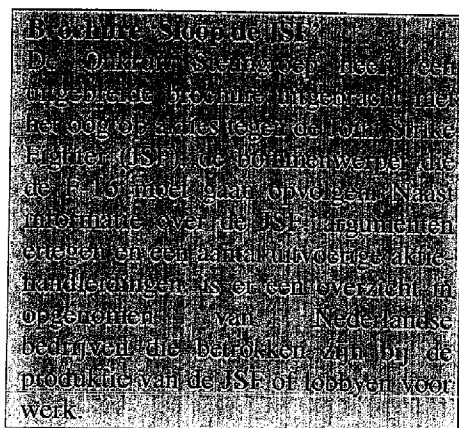 Brochure 'Sloop de JSF'
De Onkruit Steungroep heeft een
uitgebreide brochure uitgebracht met
het oog op akties tegen de Joint Strike
Fighter (JSF), de bommenwerper die
de F-16 moet gaan opvolgen. Naast
informatie over de JSF, argumenten
ertegen en een aantal uitvoerige aktie-
handleidingen is er een overzicht in
opgenomen van Nederlandse
bedrijven die betrokken zijn bij de
produktie van de JSF of lobbyen voor
werk